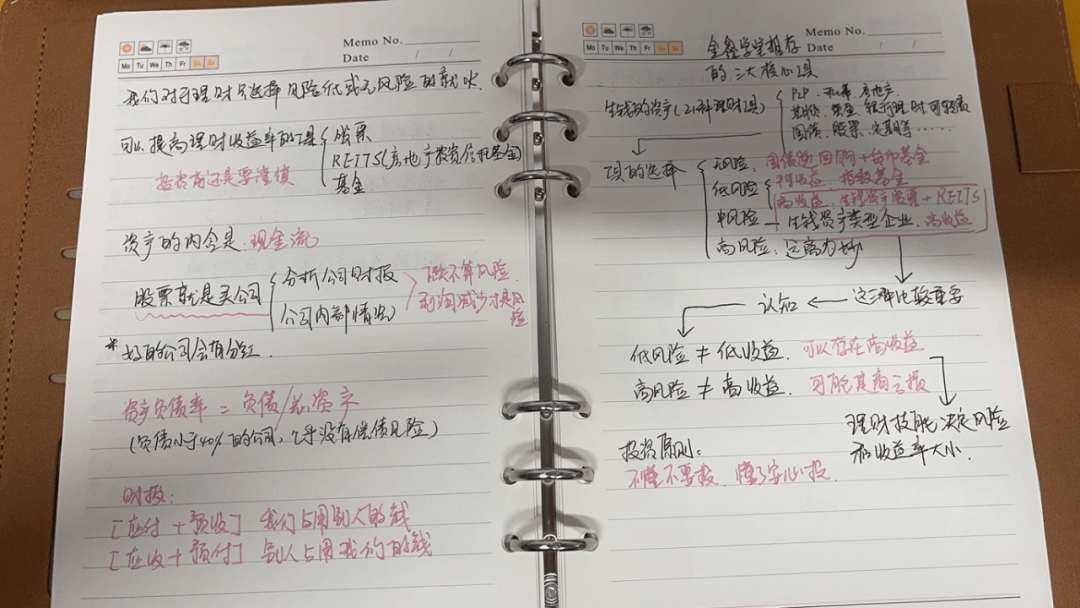 Memo No.
Mo Tu We Th Fr Sa Su
Date / /
我们对于理财只选择风险低或无风险的就好
可以提高理财收益率的工具
股票
REITS(房地产投资信托基金)
基金
投资前还是要谨慎
资产的内含是 现金流
股票就是买公司
分析公司财报
公司内部情况
下跌不算风险
利润减少才是风险
* 好的公司会有分红.
资产负债率 = 负债/总资产
(负债小于40%的公司,几乎没有偿债风险)
财报:
[应付 + 预收] 我们占用别人的钱
[应收 + 预付] 别人占用我们的钱
Memo No.
Mo Tu We Th Fr Sa Su
Date / /
金鑫学堂推荐
的三大核心工具
生钱的资产(21种理财工具)
P2P 房地产
期货 基金 银行理财
国债 股票 定期等……
工具的选择
无风险. 国债逆回购+货币基金
低风险
指数基金
高收益. 生钱资产股票 + REITS
中风险 — 生钱资产类型企业. 高收益
高风险:
这三种比较重要
认知
低风险 ≠ 低收益. 可以存在高收益
高风险 ≠ 高收益. 可能是高亏损
理财技能决定风险
和收益率大小.
投资原则:
不懂不要投. 懂了安心投.